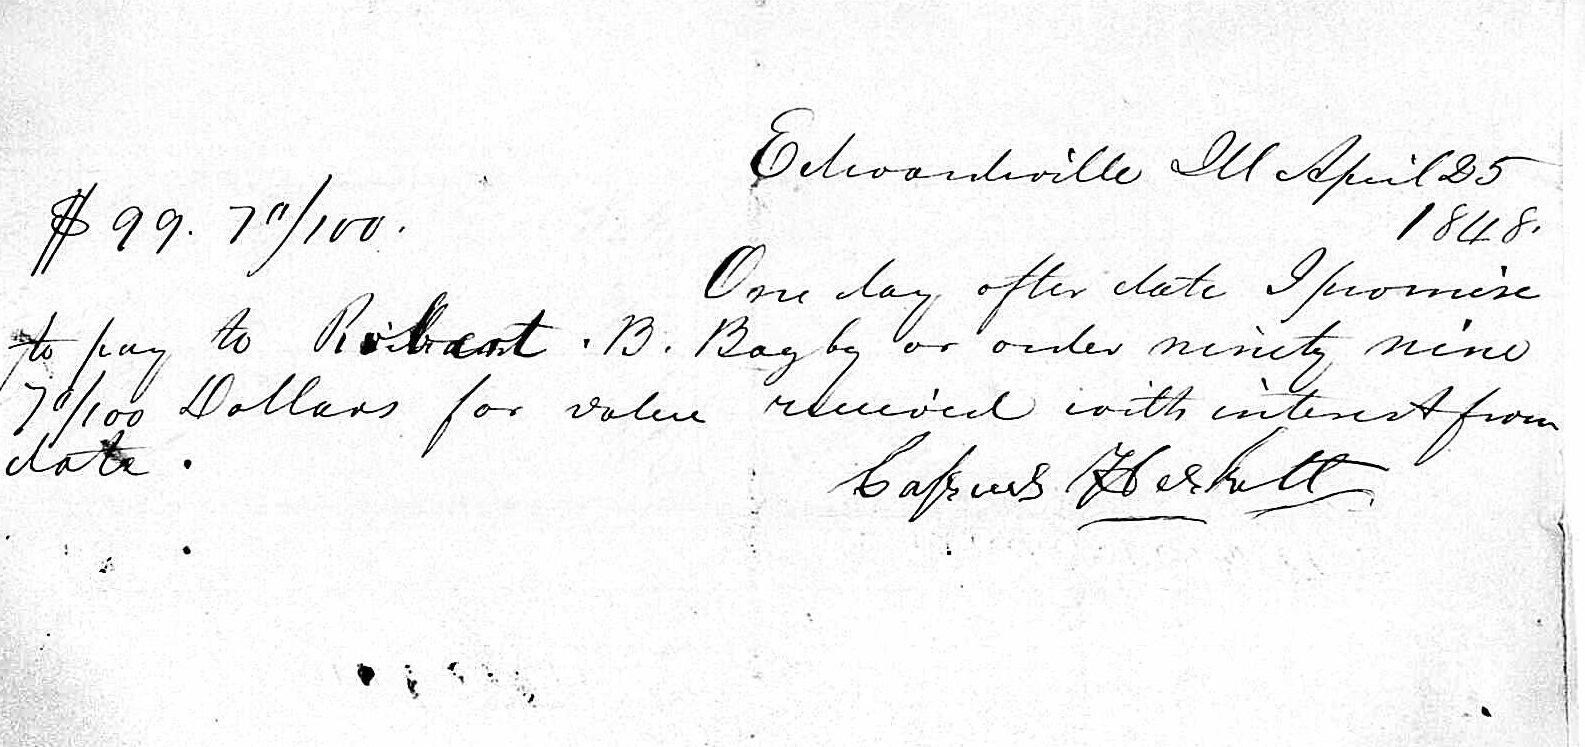 Edwardville Ill April 25
1848.
$ 99. 70/100.
One day after date I promise
to pay to Robert . B. Bagby or order ninety nine
70/100 Dollars for value received with interest from
date .